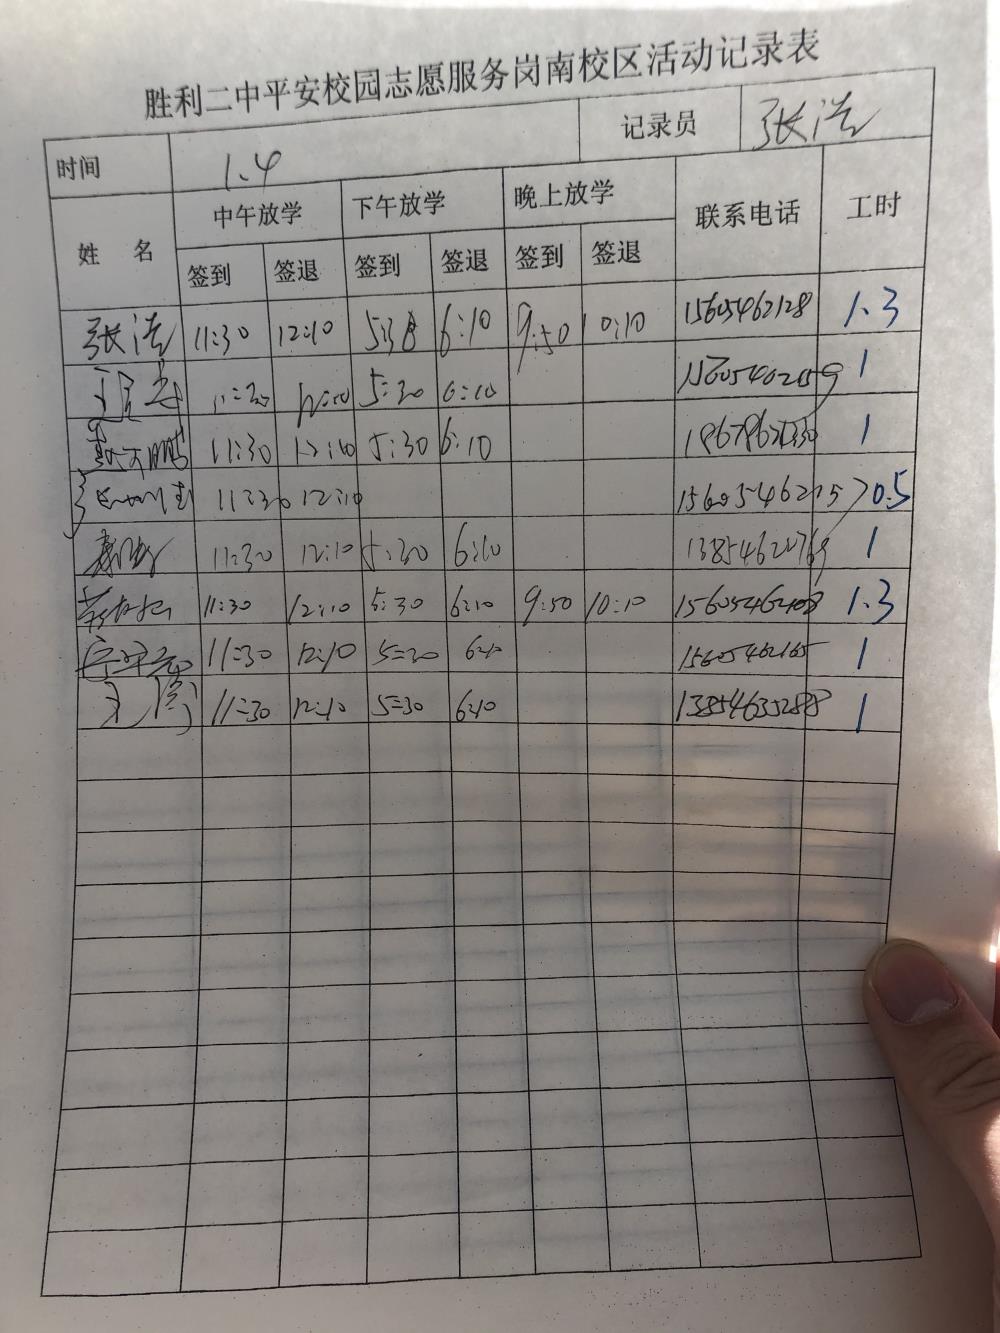 胜利二中平安校园志愿服务岗南校区活动记录表
时间 1.4 记录员 张浩
姓 名 中午放学 下午放学 晚上放学 联系电话 工时
签到 签退 签到 签退 签到 签退
张浩 11:30 12:10 5:30 6:10 9:50 10:10 15605462128 1.3
11:30 12:10 5:30 6:10 1
11:30 12:10 5:30 6:10 1
11:30 12:10 0.5
11:30 12:10 5:30 6:10 1
11:30 12:10 5:30 6:10 9:50 10:10 1.3
11:30 12:10 5:30 6:10 15605462165 1
11:30 12:10 5:30 6:10 13854635288 1